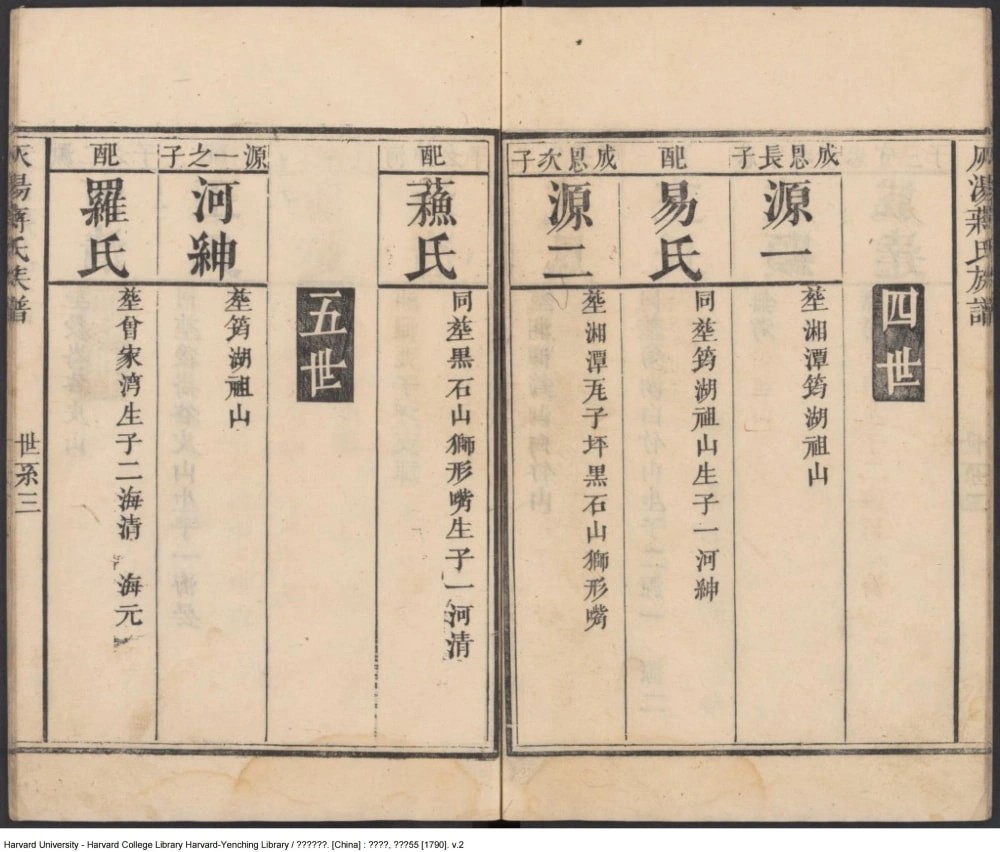 灰湯蔣氏族譜
四世
成恩長子
源一
塟湘潭筠湖祖山
配
易氏
同塟筠湖祖山生子一河紳
成恩次子
源二
塟湘潭瓦子坪黑石山獅形嘴
配
蘓氏
同塟黑石山獅形嘴生子一河清
五世
源一之子
河紳
塟筠湖祖山
配
羅氏
塟曾家湾生子二海清 海元
灰湯蔣氏族譜
世系三
Harvard University - Harvard College Library Harvard-Yenching Library / ??????. [China] : ????, ???55 [1790]. v.2